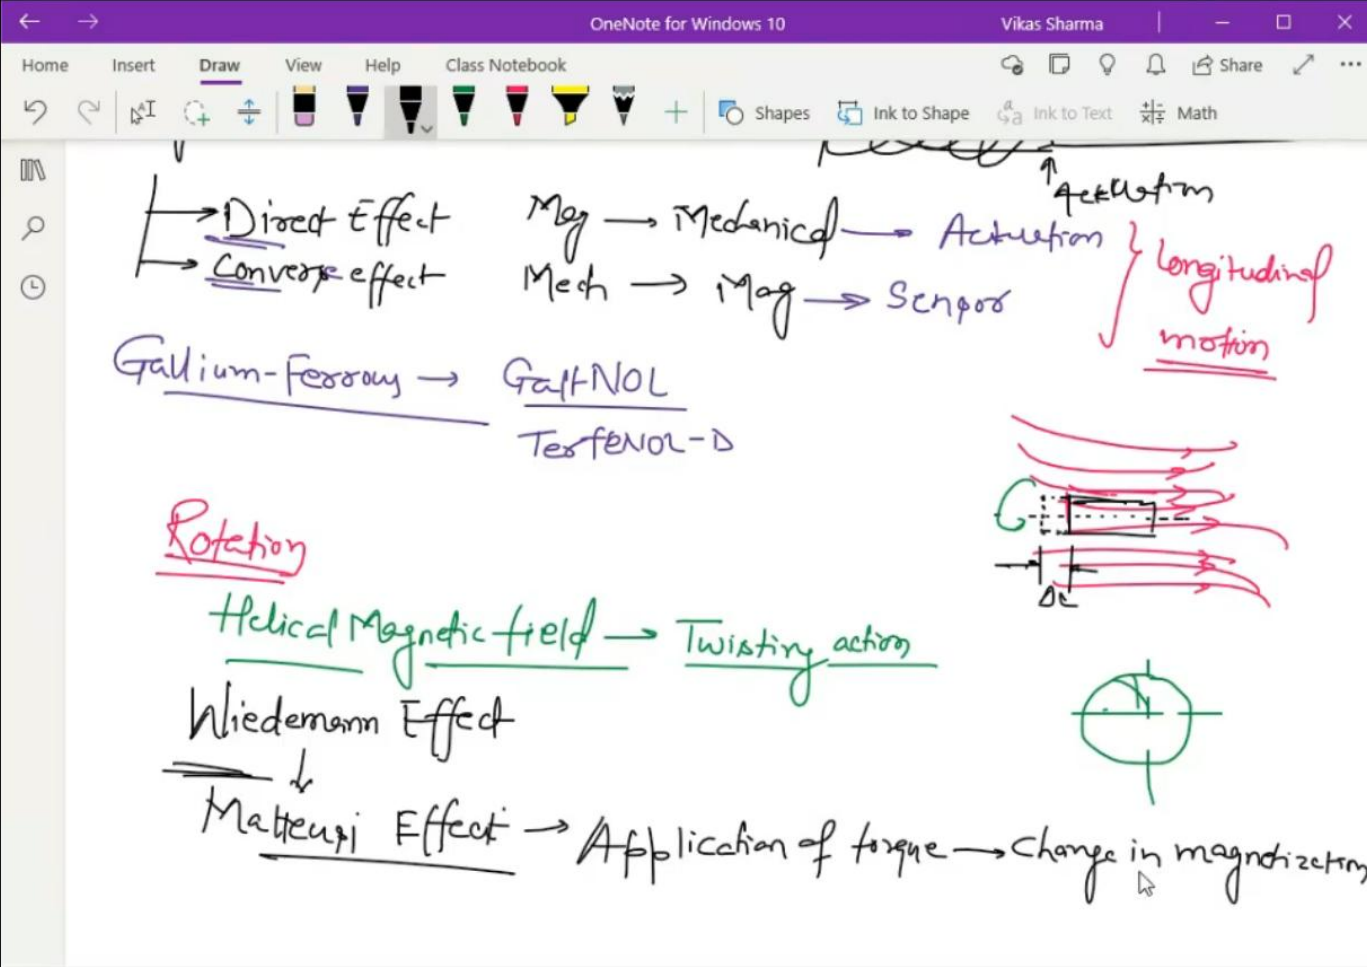 OneNote for Windows 10
Vikas Sharma
Home Insert Draw View Help Class Notebook
Share
Shapes Ink to Shape Ink to Text Math
Actuation
Direct Effect Mag → Mechanical → Actuation
Converse effect Mech → Mag → Sensor
Longitudinal
motion
Gallium-Ferrous → GalfNOL
TerfeNOL-D
Rotation
Helical Magnetic field → Twisting action
Wiedemann Effect
Matteusi Effect → Application of torque → Change in magnetization